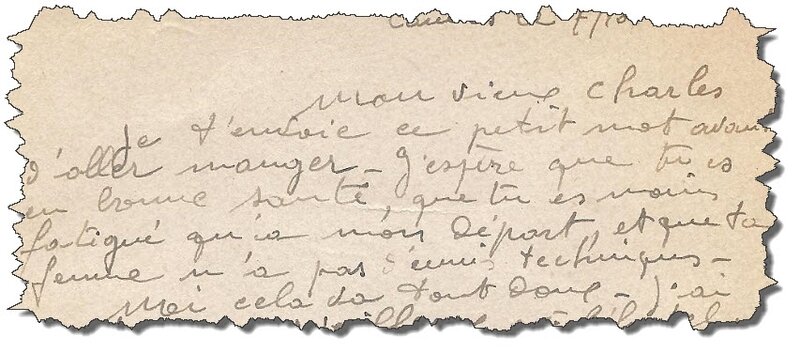 Mon vieux Charles
Je t'envoie ce petit mot avan
d'aller manger _ J'espère que tu es
en bonne santé, que tu es moins
fatigué qu'a mon départ, et que ta
femme n'a pas d'ennuis techniques _
Moi cela va tout doux _ J'ai